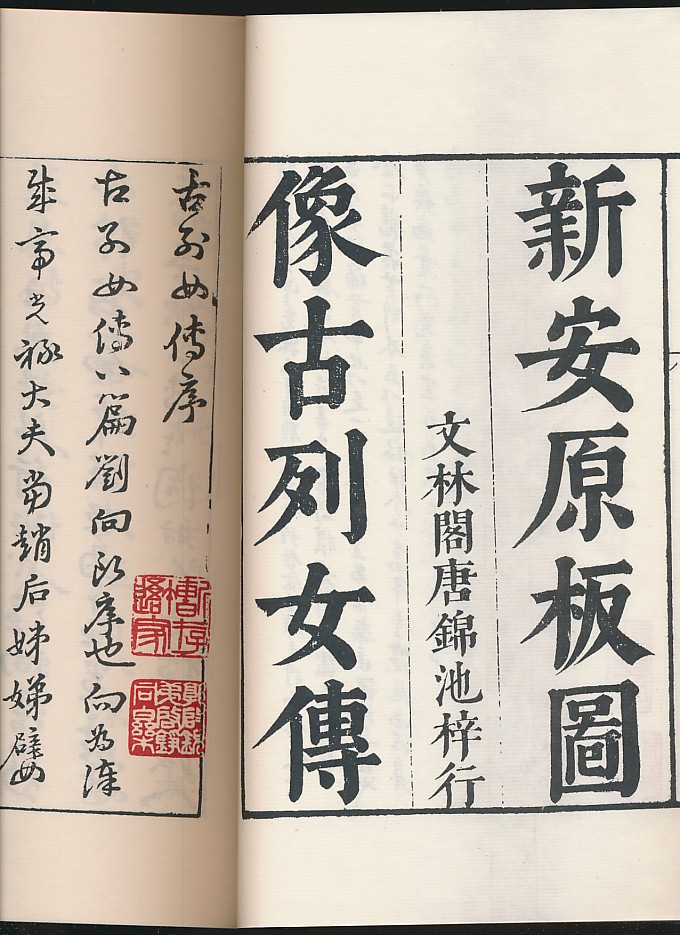 新安原板圖
文林閣唐錦池梓行
像古列女傳
古列女傳序
古列女傳八篇劉向所序也向為漢
成帝光祿大夫當趙后姊娣嬖